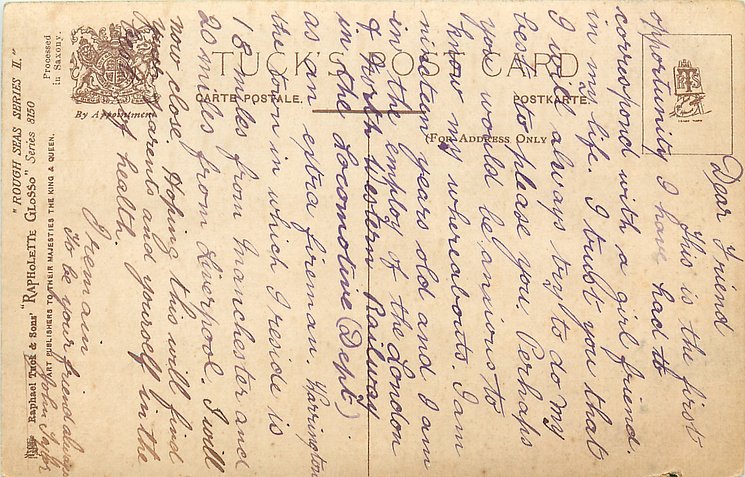 TUCK'S POST CARD
CARTE POSTALE.
POSTKARTE.
(FOR ADDRESS ONLY)
By Appointment
Processed
in Saxony.
"ROUGH SEAS SERIES II."
Raphael Tuck & Sons' "RAPHOLETTE GLOSSO" Series 8150
ART PUBLISHERS TO THEIR MAJESTIES THE KING & QUEEN.
Dear Friend
This is the first
opportunity I have had to
correspond with a girl friend.
in my life. I trust you that
I will always try to do my
best to please you. Perhaps
you would be anxious to
know my whereabouts. I am
nineteen years old and I am
in the employ of the London
& North Western Railway
in the Locomotive (Dept)
as an extra fireman. Warrington
the town in which I reside is
18 miles from Manchester and
20 miles from Liverpool. I will
now close. Hoping this will find
your parents and yourself in the
best of health.
I remain
To be your friend always
John